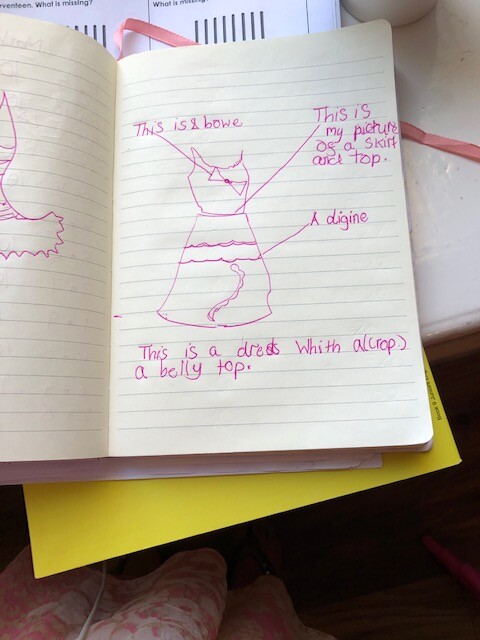 eventeen. What is missing?
What is missing?
This is a bowe
This is
my picture
of a skirt
and top.
A digine
This is a dress Whith a (crop)
a belly top.